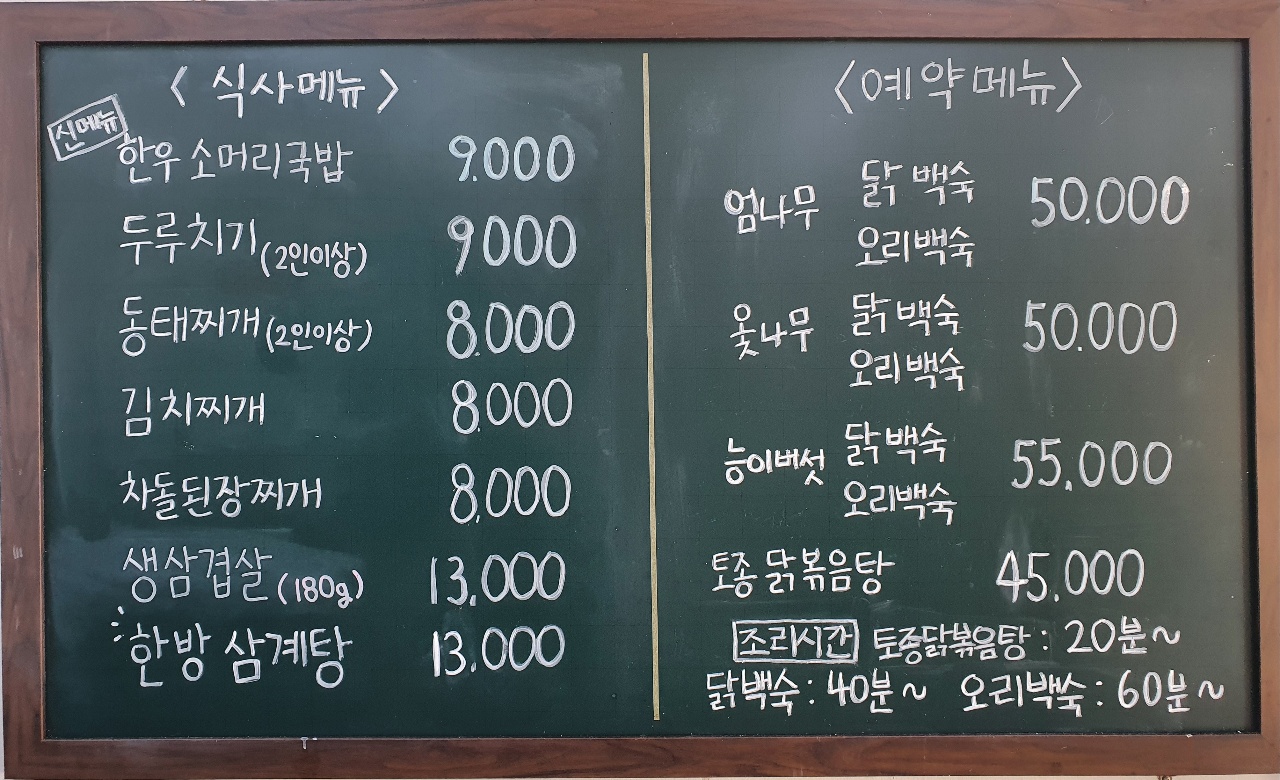 < 식사메뉴 >
신메뉴
한우 소머리국밥 9.000
두루치기 (2인이상) 9000
동태찌개 (2인이상) 8.000
김치찌개 8.000
차돌된장찌개 8,000
생삼겹살 (180g) 13,000
한방 삼계탕 13.000
<예약메뉴>
엄나무 닭백숙 50.000
오리백숙
옻나무 닭백숙 50.000
오리백숙
능이버섯 닭백숙 55,000
오리백숙
토종 닭볶음탕 45.000
조리시간 토종닭볶음탕 : 20분~
닭백숙 : 40분~ 오리백숙 : 60분~